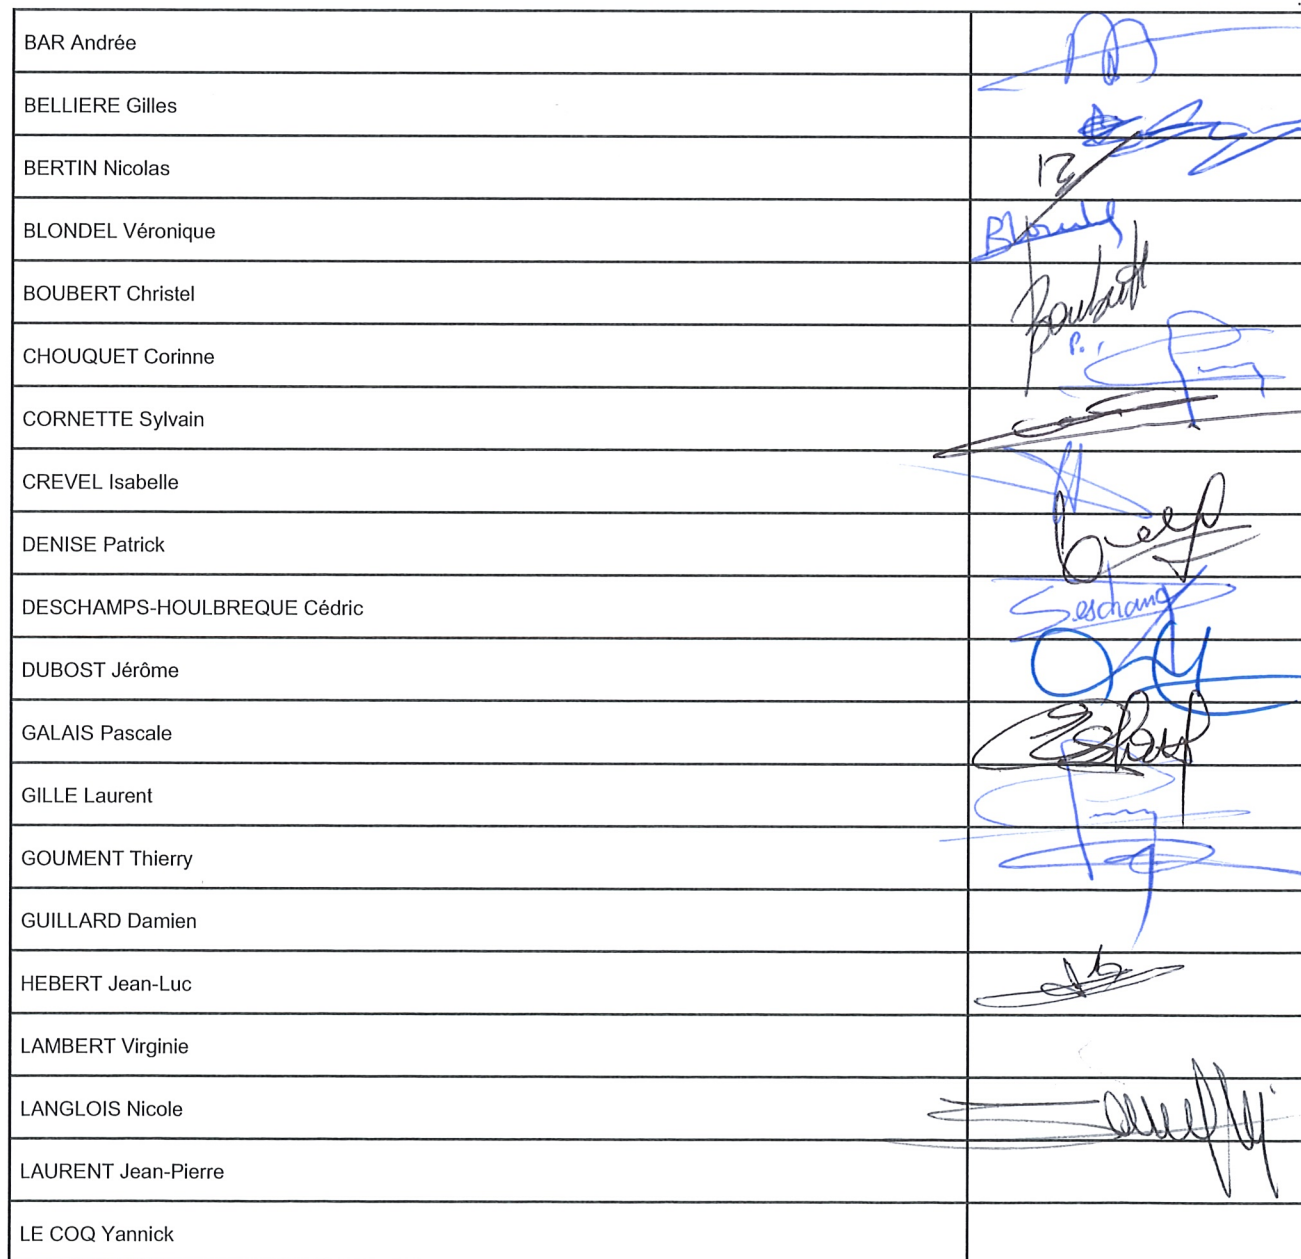 BAR Andrée
BELLIERE Gilles
BERTIN Nicolas
BLONDEL Véronique Blondel
BOUBERT Christel Boubert
CHOUQUET Corinne P.
CORNETTE Sylvain
CREVEL Isabelle
DENISE Patrick
DESCHAMPS-HOULBREQUE Cédric
DUBOST Jérôme
GALAIS Pascale
GILLE Laurent
GOUMENT Thierry
GUILLARD Damien
HEBERT Jean-Luc
LAMBERT Virginie
LANGLOIS Nicole
LAURENT Jean-Pierre
LE COQ Yannick